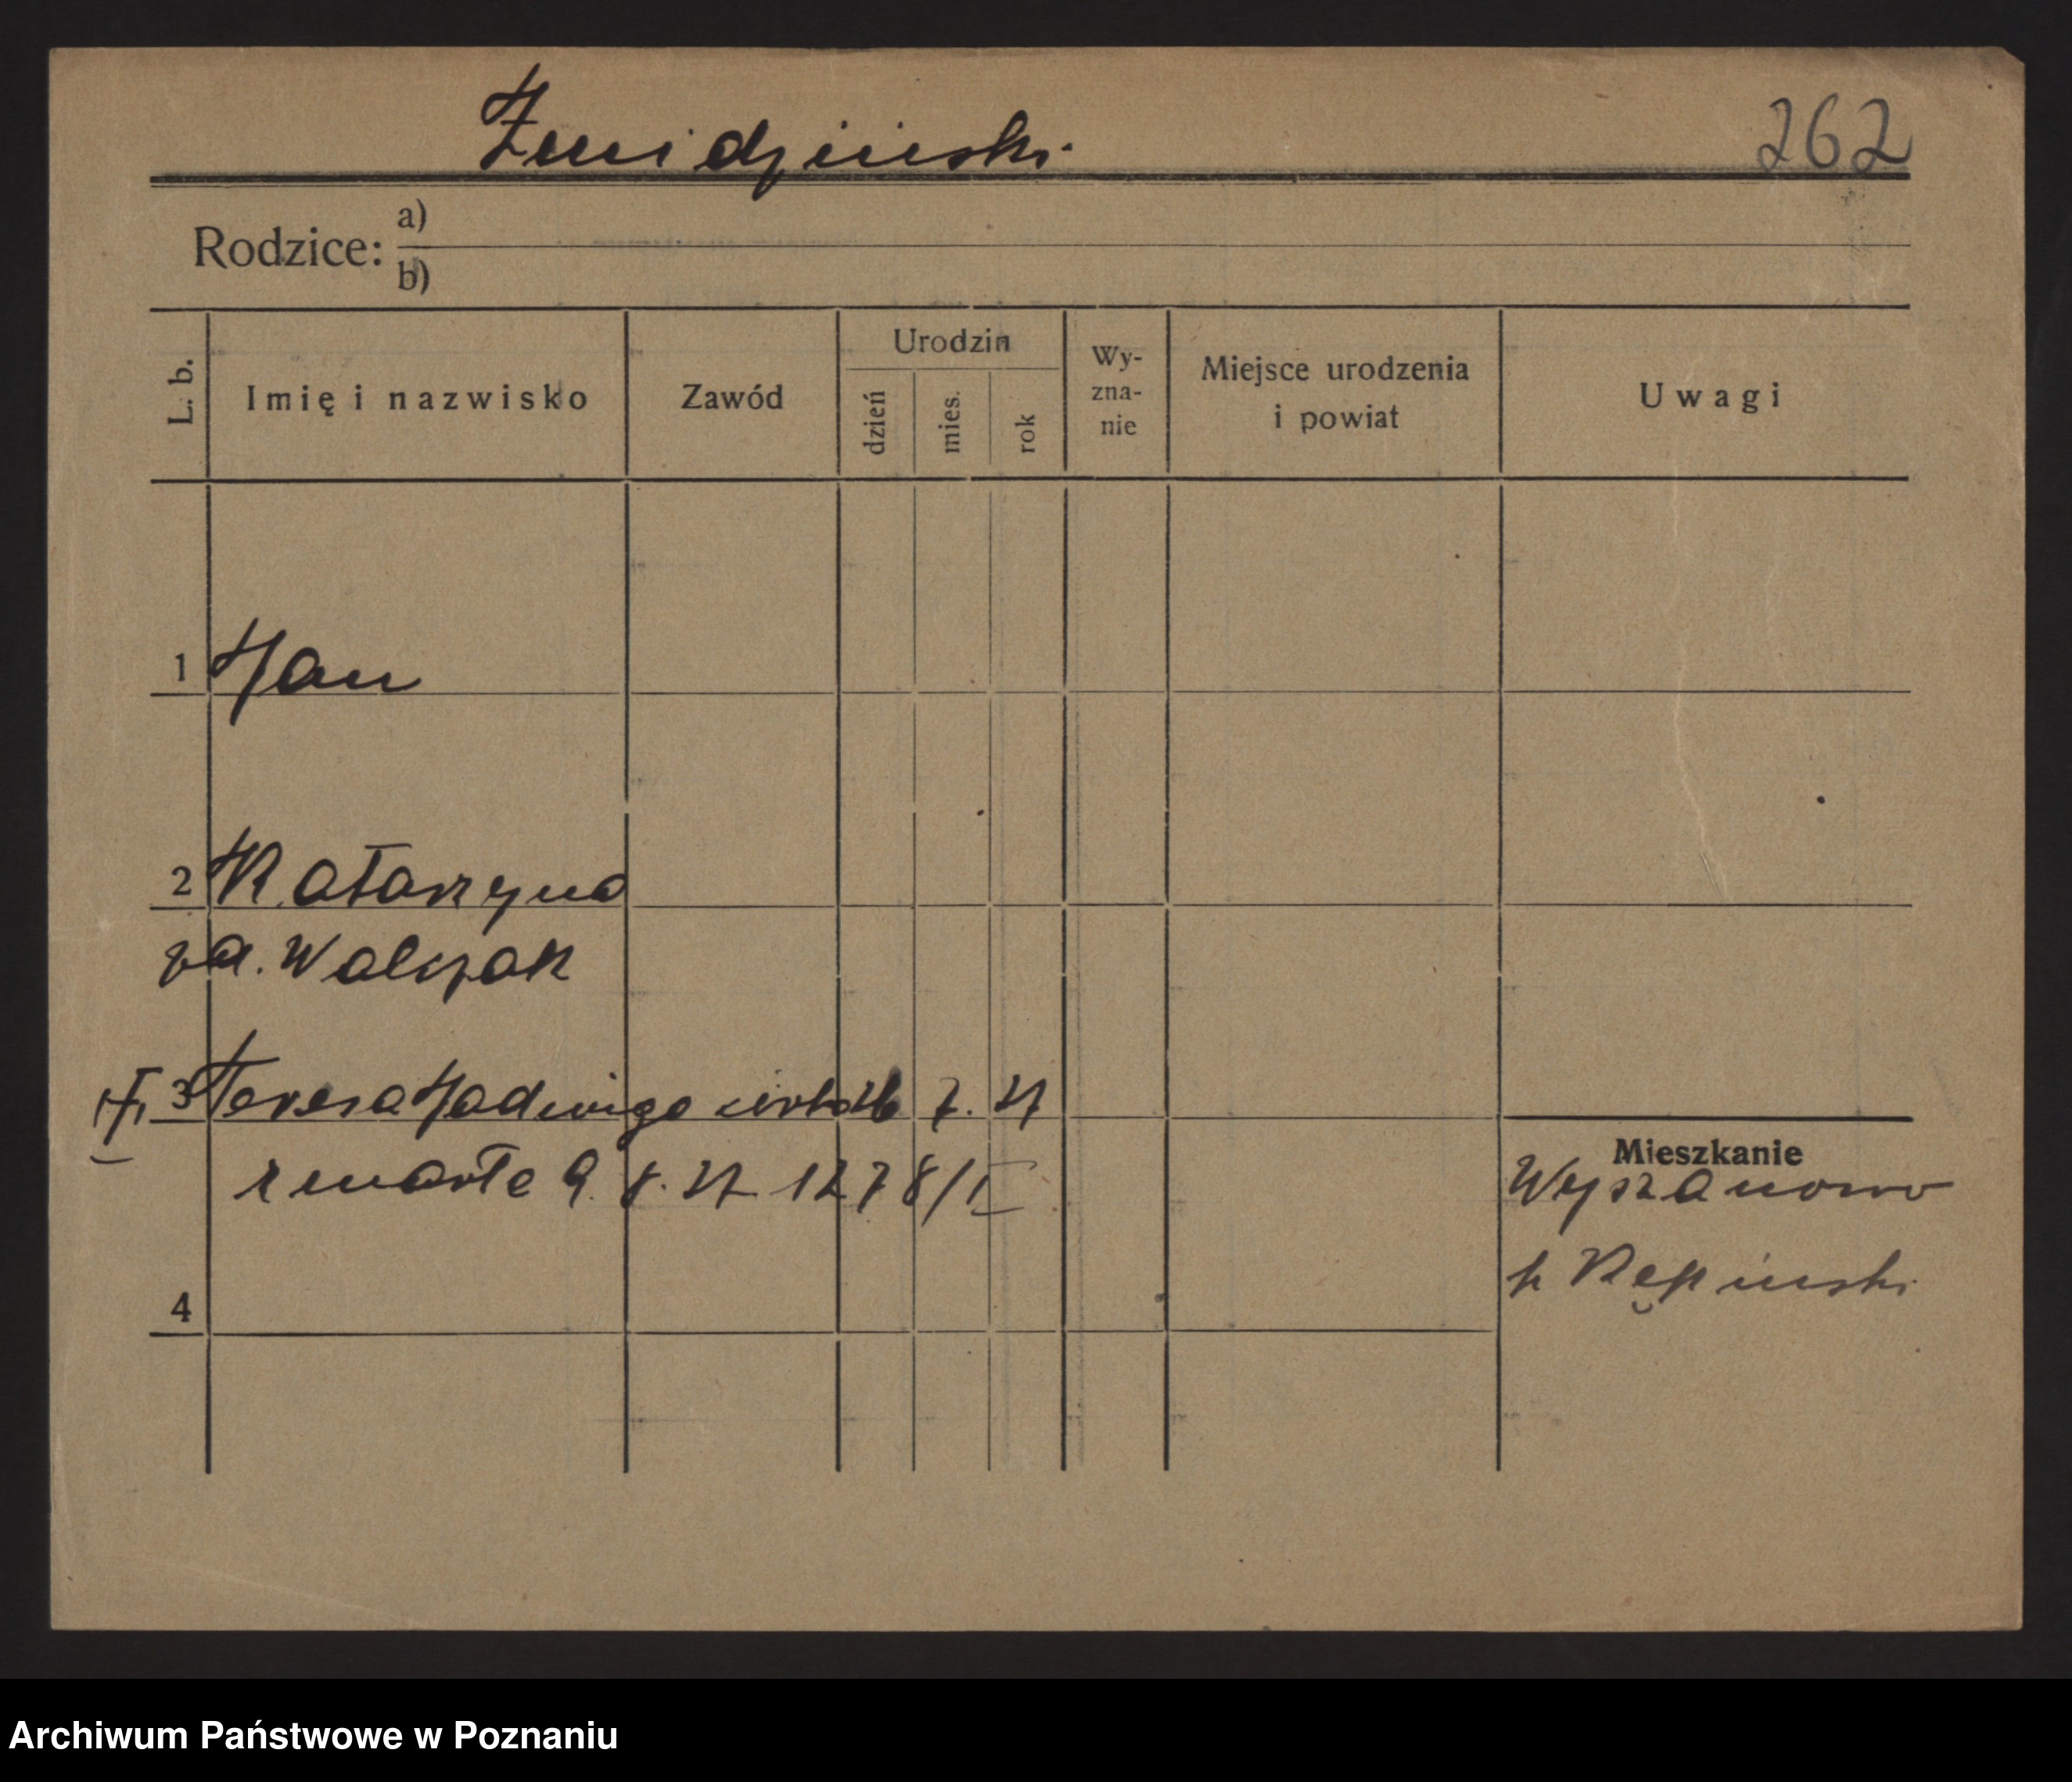 Żmidziński
262
Rodzice: a)
b)
L. b.
Imię i nazwisko
Zawód
Urodzin
dzień
mies.
rok
Wy-
zna-
nie
Miejsce urodzenia
i powiat
Uwagi
1 Jan
2 Katarzyna
za. Walczak
3 Teresa Jadwiga córka 26 7. 27
zmarła 9. 8. 27 1278/II
Mieszkanie
Wyszanowo
p Kępiński
4
Archiwum Państwowe w Poznaniu